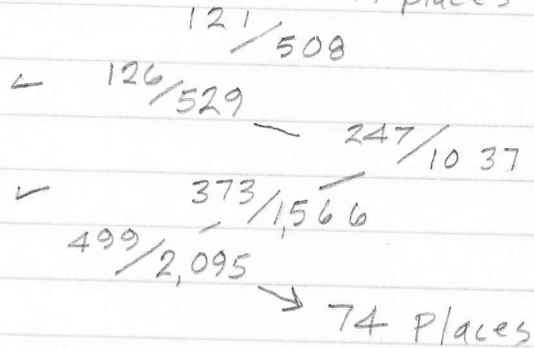 places
121/508
126/529
247/1037
373/1,566
499/2,095
74 Places